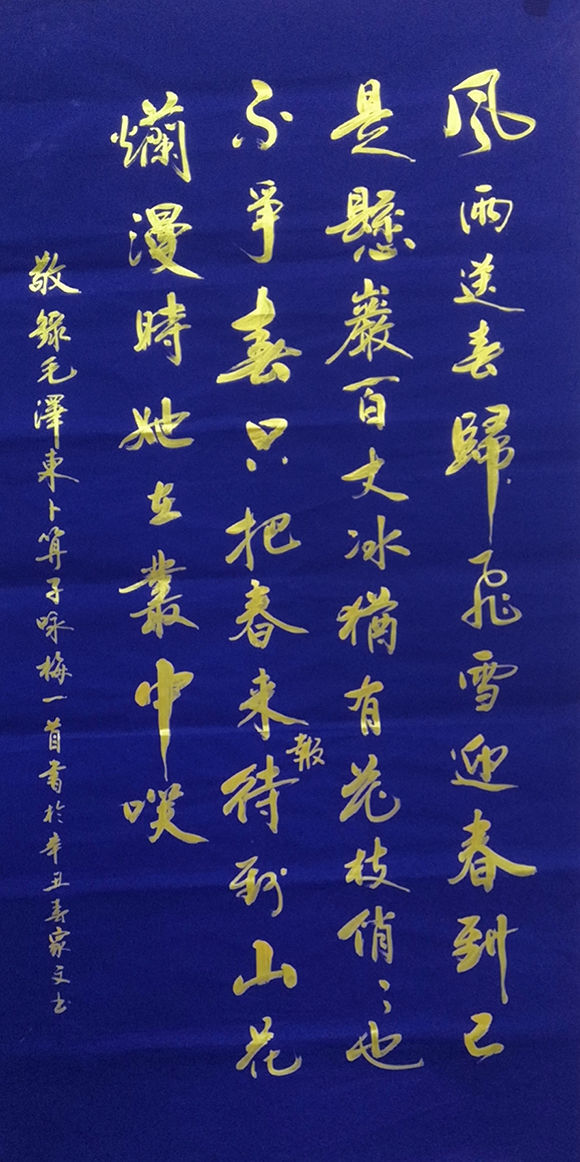 風雨送春歸飛雪迎春到已
是懸巖百丈冰猶有花枝俏〻也
不爭春只把春来報待到山花
爛漫時她在叢中咲
敬錄毛澤東卜算子咏梅一首書於辛丑寿家文书